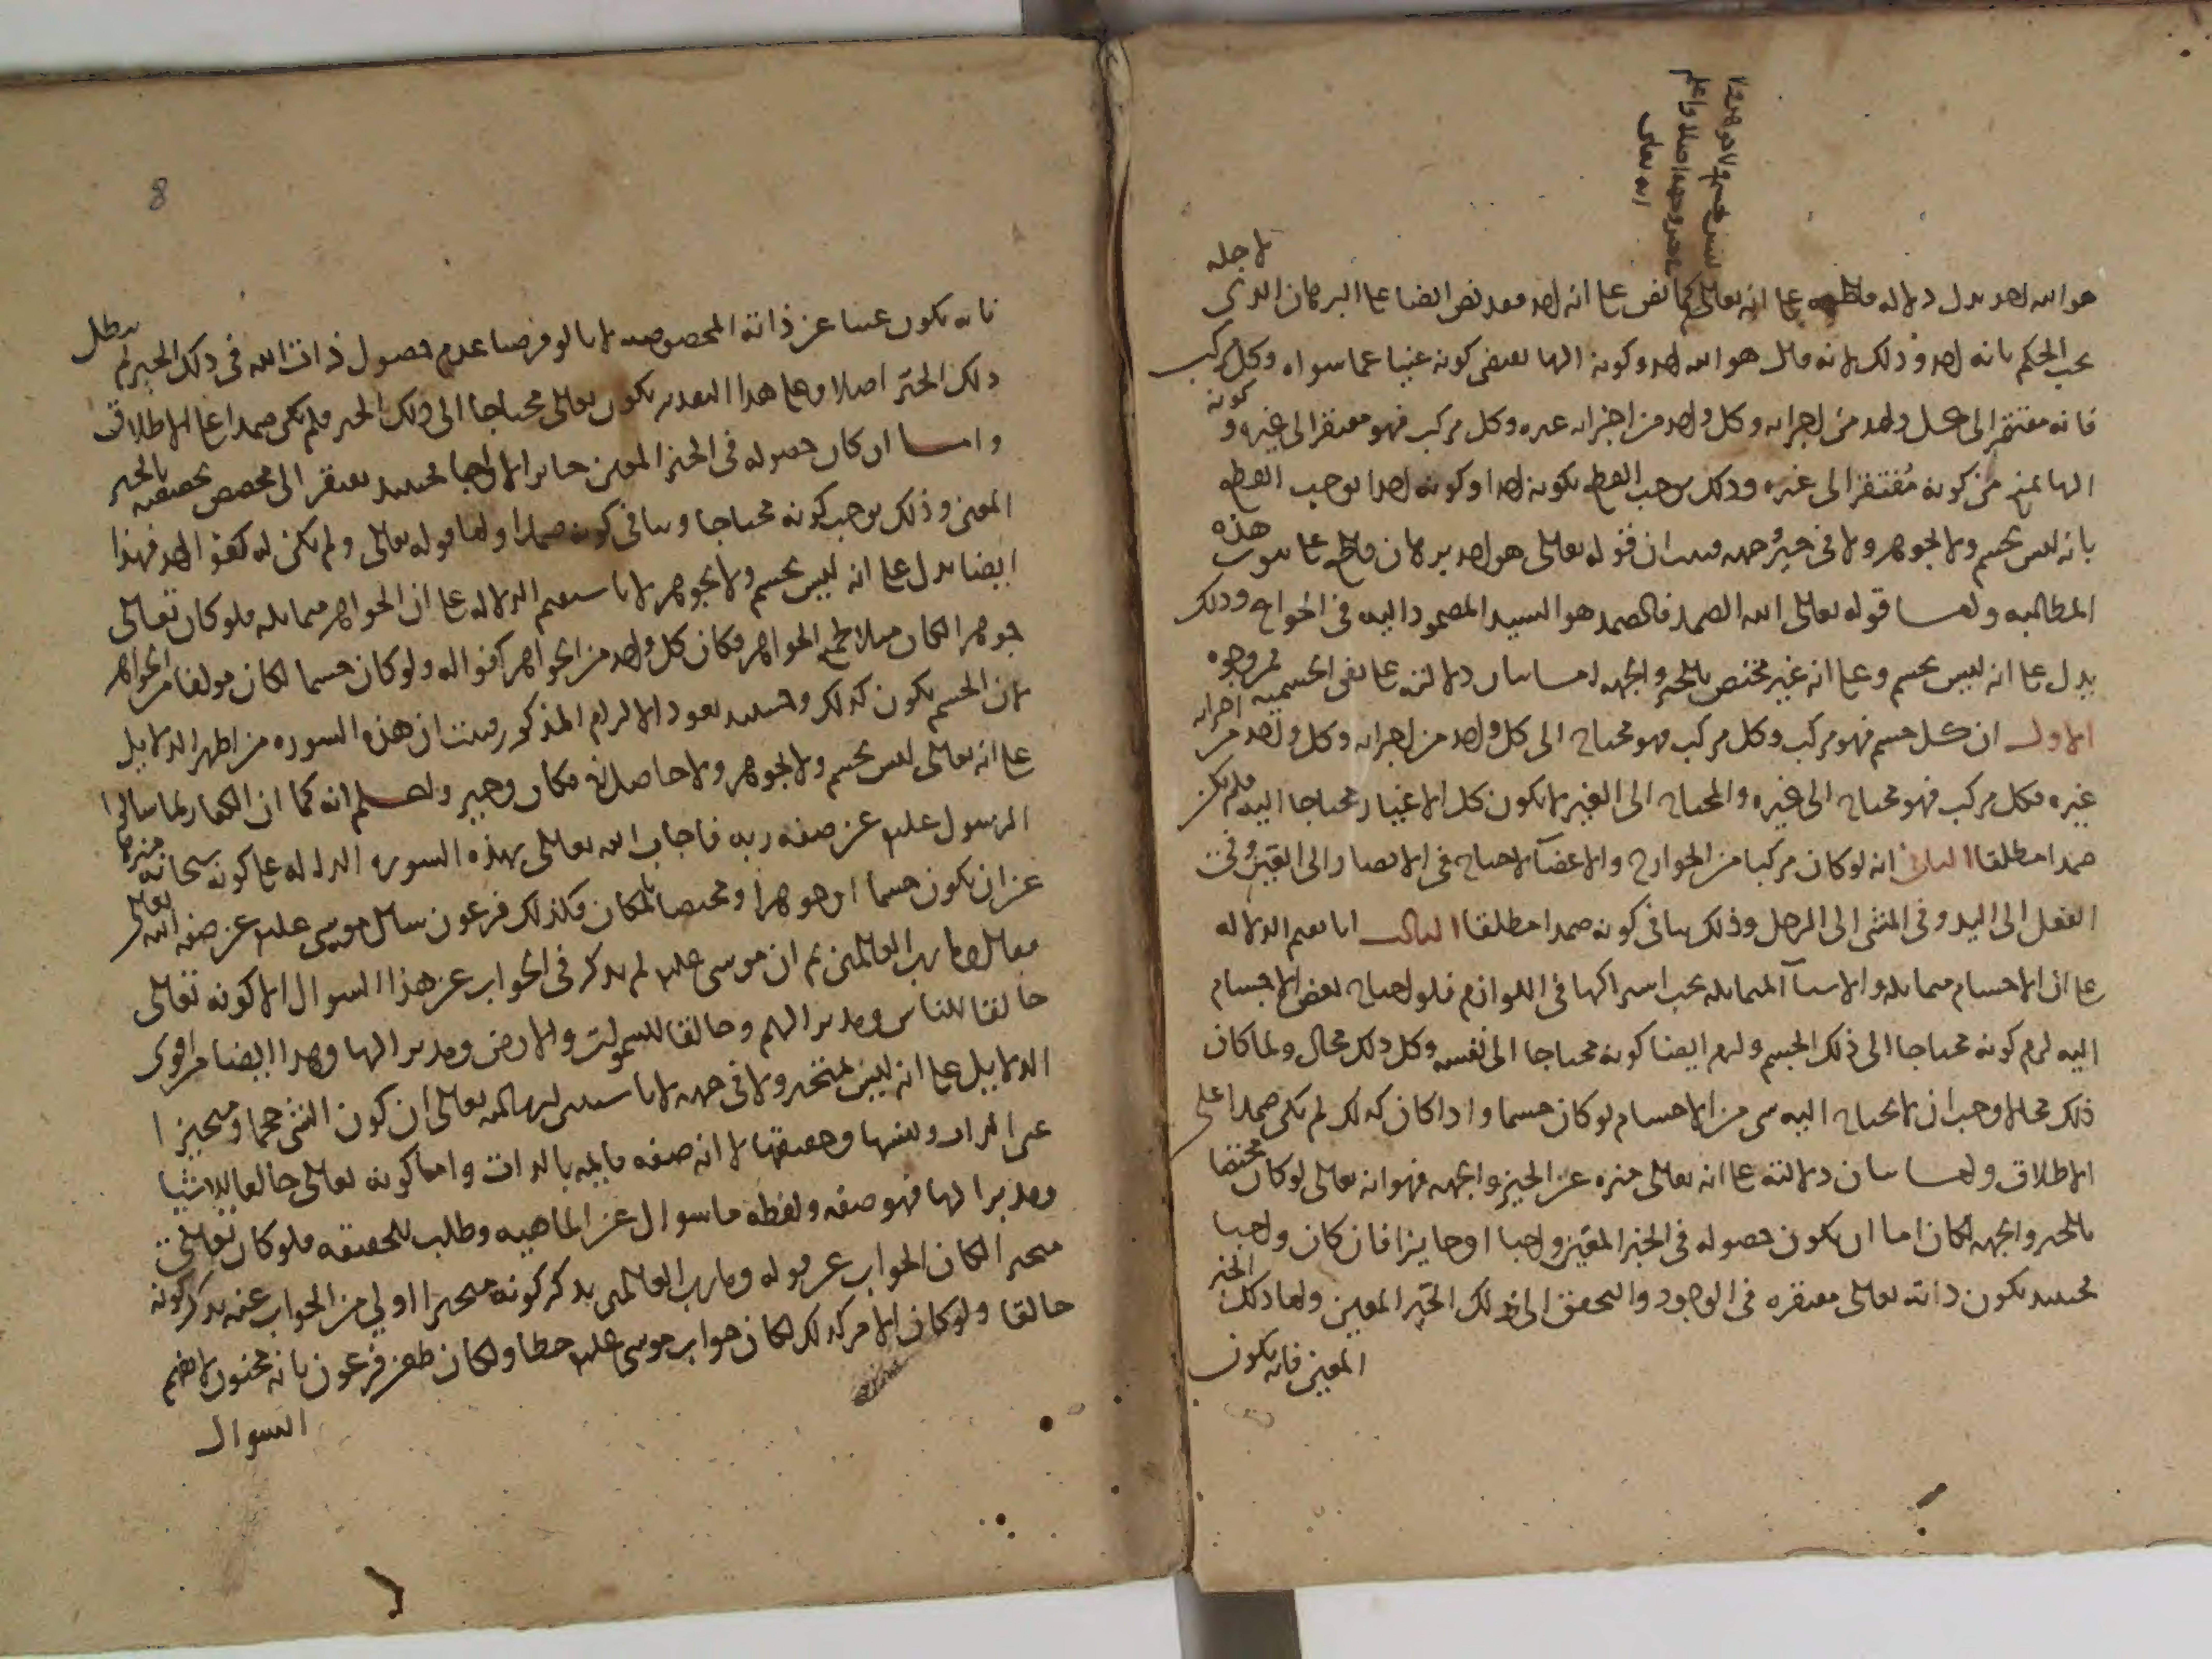 ليس بجسم ولا جوهر ولا
حيز وجهة اصلا واعلم
انه تعالى
هو الله احد يدل دلالة قاطعة على انه تعالى كما نص على انه احد فقد نص ايضا على البرهان الذي لاجله
يجب الحكم بانه احد وذلك لانه قال هو الله احد وكونه الها يقتضي كونه غنيا عما سواه وكل مركب
فانه مفتقر الى كل واحد من اجزائه وكل واحد من اجزائه غيره وكل مركب فهو مفتقر الى غيره وكونه
الها يمنع من كونه مفتقرا الى غيره وذلك يوجب القطع بكونه احدا وكونه احدا يوجب القطع
بانه ليس بجسم ولا بجوهر ولا في حيز وجهة فثبت ان قوله تعالى هو احد برهان قاطع على ثبوت هذه
المطالب واما قوله تعالى الله الصمد فالصمد هو السيد المصمود اليه في الحوائج وذلك
يدل على انه ليس بجسم وعلى انه غير مختص بالحيز والجهة اما بيان دلالته على نفي الجسمية فمن وجوه
الاول ان كل جسم فهو مركب وكل مركب فهو محتاج الى كل واحد من اجزائه وكل واحد من اجزائه
غيره فكل مركب فهو محتاج الى غيره والمحتاج الى الغير لا يكون كل الاغيار محتاجا اليه فلم يكن
صمدا مطلقا الثاني انه لو كان مركبا من الجوارح والاعضاء لاحتاج في الابصار الى العين وفي
الفعل الى اليد وفي المشي الى الرجل وذلك ينافي كونه صمدا مطلقا الثالث انا نقيم الدلالة
على ان الاجسام متماثلة والاشياء المتماثلة يجب اشتراكها في اللوازم فلو احتاج بعض الاجسام
اليه لزم كونه محتاجا الى ذلك الجسم ولزم ايضا كونه محتاجا الى نفسه وكل ذلك محال ولما كان
ذلك محالا وجب ان لا يحتاج اليه شي من الاجسام لو كان جسما واذا كان كذلك لم يكن صمدا على
الاطلاق واما بيان دلالته على انه تعالى منزه عن الحيز والجهة فهو انه تعالى لو كان مختصا
بالحيز والجهة لكان اما ان يكون حصوله في الحيز المعين واجبا او جايزا فان كان واجبا
فحينئذ يكون ذاته تعالى مفتقرة في الوجود والتحقق الى ذلك الحيز المعين واما ذلك الحيز
المعين فانه يكون
8
فانه يكون غنيا عن ذاته المخصوصة لانا لو فرضنا عدم حصول ذات الله في ذلك الحيز لم يبطل
ذلك الحيز اصلا وعلى هذا التقدير يكون تعالى محتاجا الى ذلك الحيز فلم يكن صمدا على الاطلاق
واما ان كان حصوله في الحيز المعين جائزا لا واجبا فحينئذ يفتقر الى مخصص يخصصه بالحيز
المعين وذلك يوجب كونه محتاجا وينافي كونه صمدا واما قوله تعالى ولم يكن له كفوا احد فهذا
ايضا يدل على انه ليس بجسم ولا بجوهر لانا سنقيم الدلالة على ان الجواهر متماثلة فلو كان تعالى
جوهرا لكان مثلا لجميع الجواهر فكان كل واحد من الجواهر كفوا له ولو كان جسما لكان مولفا من الجواهر
لان الجسم يكون كذلك وحينئذ يعود الالزام المذكور فثبت ان هذه السورة من اظهر الدلايل
على انه تعالى ليس بجسم ولا بجوهر ولا حاصل في مكان وحيز واعلم انه كما ان الكفار لما سالوا
الرسول عليه عن صفة ربه فاجاب الله تعالى بهذه السورة الدالة على كونه سبحانه منزها
عن ان يكون جسما او جوهرا او مختصا بالمكان فكذلك فرعون سال موسى عليه عن صفة الله تعالى
فقال وما رب العالمين ثم ان موسى عليه لم يذكر في الجواب عن هذا السوال الا كونه تعالى
خالقا للناس ومدبرا لهم وخالقا للسموات والارض ومدبرا لها وهذا ايضا من اقوى
الدلايل على انه ليس بمتحيز ولا في جهة لانا سنبين ان كون الشي حجما ومتحيزا
عين الذات ونفسها وحقيقتها لا انه صفة قايمة بالذات واما كونه تعالى خالقا للاشيا
ومدبرا لها فهو صفة ولفظة ما سوال عن الماهية وطلب للحقيقة فلو كان تعالى
متحيزا لكان الجواب عن قوله وما رب العالمين بذكر كونه متحيزا اولى من الجواب عنه بذكر كونه
خالقا ولو كان الامر كذلك لكان جواب موسى عليه خطا ولكان طعن فرعون بانه مجنون لا يفهم
السوال